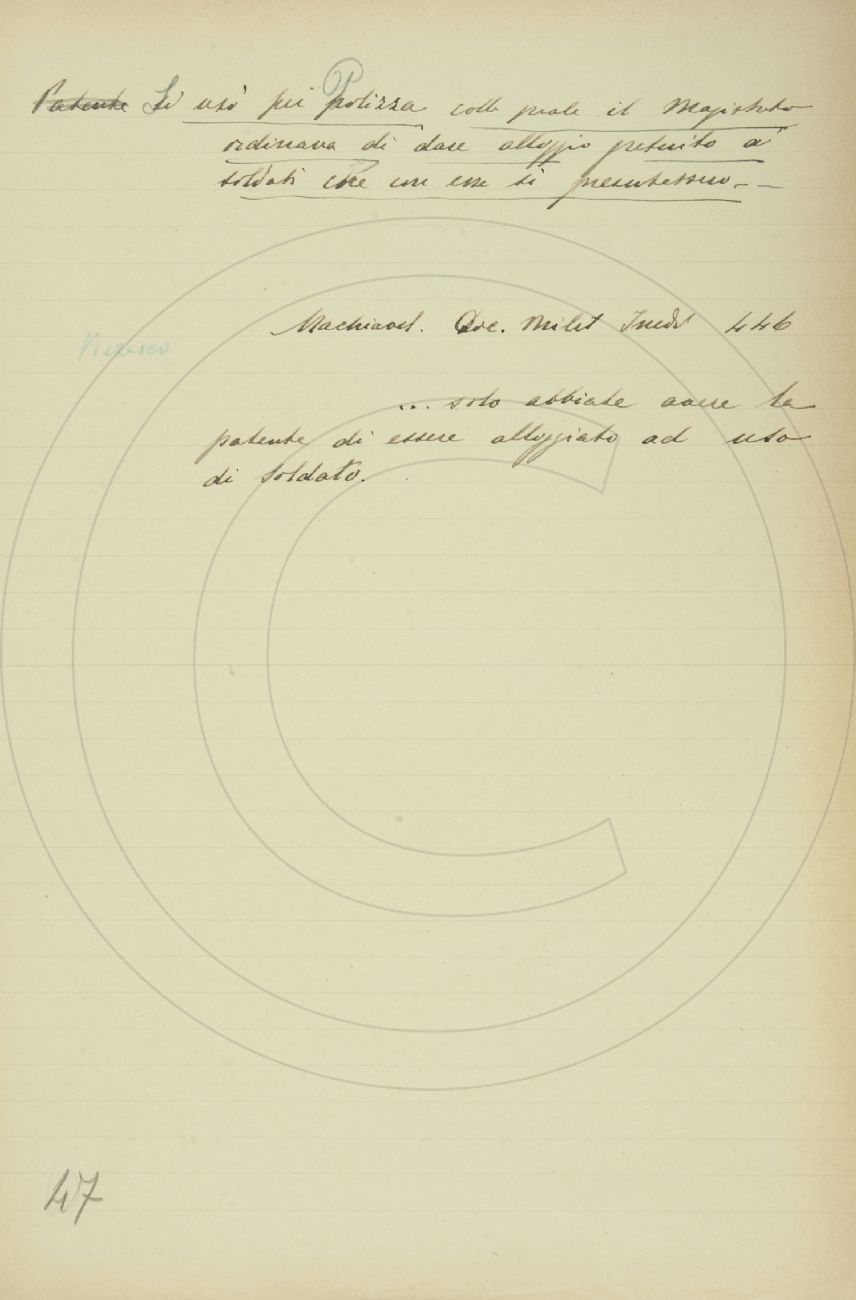 Patente Si usò per Polizza colla quale il Magistrato
ordinava di dare alloggio gratuito a'
soldati che con essa si presentassero. -
Machiavel. Doc. Milit Inedi 446
... solo abbiate avere la
patente di essere alloggiato ad uso
di soldato.
47